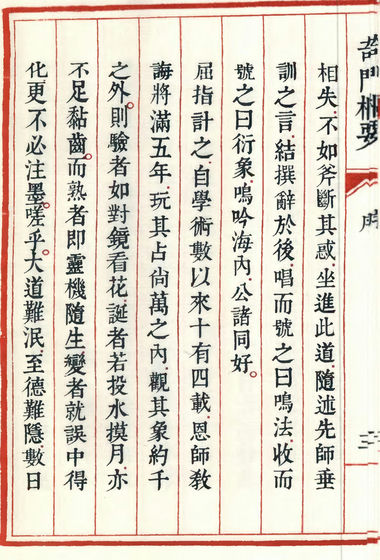 奇門樞要
序
三
相失、不如斧斷其惑、坐進此道、隨述先師垂
訓之言、結撰辭於後、唱而號之曰鳴法、收而
號之曰衍象、鳴吟海內、公諸同好。
屈指計之、自學術數以來十有四載、恩師教
誨將滿五年、玩其占尙萬之內、觀其象約千
之外。則驗者如對鏡看花、誕者若投水摸月、亦
不足黏齒。而熟者即靈機隨生變者就誤中得
化更不必注墨。嗟乎。大道難泯、至德難隱、數日